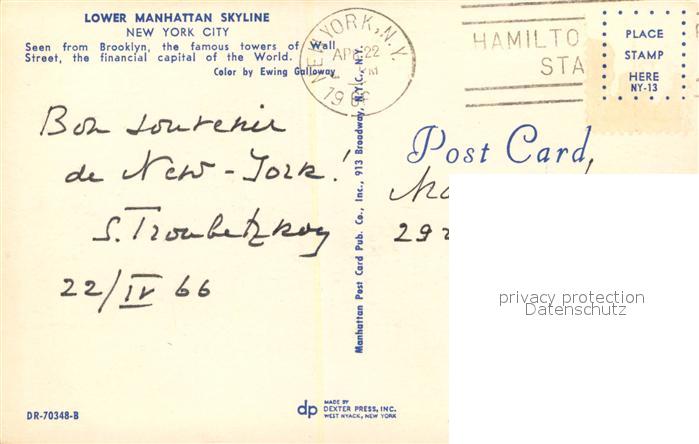 LOWER MANHATTAN SKYLINE
NEW YORK CITY
Seen from Brooklyn, the famous towers of Wall
Street, the financial capital of the World.
Color by Ewing Galloway
NEW YORK, N.Y.
APR 22
PM
1966
HAMILTO
STA
PLACE
STAMP
HERE
NY-13
Bon souvenir
de New-York!
S. Troubetzkoy
22/IV 66
Manhattan Post Card Pub. Co., Inc., 913 Broadway, N.Y.C., N.Y.
Post Card
29
privacy protection
Datenschutz
DR-70348-B
dp
MADE BY
DEXTER PRESS, INC.
WEST NYACK, NEW YORK